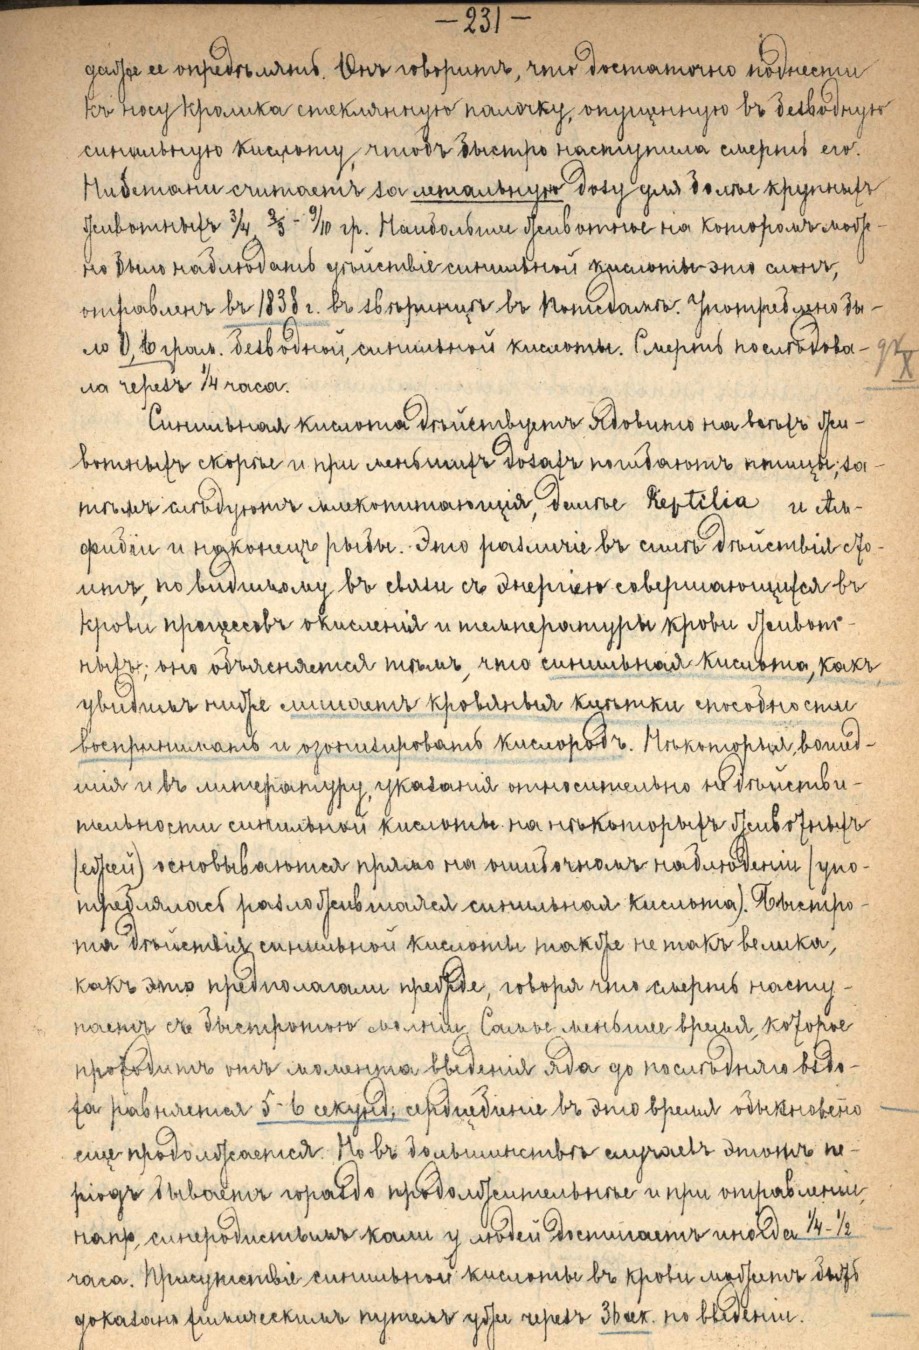 — 231 —
даже ее опредѣлять. Онъ говоритъ, что достаточно поднести
къ носу кролика стеклянную палочку, опущенную въ безводную
синильную кислоту, чтобъ быстро наступила смерть его.
считаетъ за летальную дозу для болѣе крупныхъ
животныхъ 3/4, 9/10 гр. Наибольшее животное на которомъ мож-
но было наблюдать дѣйствіе синильной кислоты это слонъ,
отравленъ въ 1838 г. въ звѣринцѣ въ Потсдамѣ. Употреблено бы-
ло безводной, синильной кислоты. Смерть послѣдова-
ла черезъ 1/4 часа.
Синильная кислота дѣйствуетъ ядовито на всѣхъ жи-
вотныхъ скорѣе и при меньшихъ дозахъ погибаютъ птицы; за-
тѣмъ слѣдуютъ млекопитающія, далѣе Reptilia и Ам-
фибіи и наконецъ рыбы. Это различіе въ силѣ дѣйствія сто-
итъ, по видимому въ связи съ энергіею совершающихся въ
крови процессовъ окисленія и температуры крови живот-
ныхъ; оно объясняется тѣмъ, что синильная кислота, какъ
увидимъ ниже лишаетъ кровяныя клѣтки способности
воспринимать и озонизировать кислородъ. Нѣкоторыя, вошед-
шія и въ литературу, указанія относительно недѣйстви-
тельности синильной кислоты на нѣкоторыхъ животныхъ
(ежей) основываются прямо на ошибочномъ наблюденіи (упо-
треблялась разложившаяся синильная кислота). Быстро-
та дѣйствія синильной кислоты также не такъ велика,
какъ это предполагали прежде, говоря что смерть насту-
паетъ съ быстротою молніи. Самое меньшее время, которое
проходитъ отъ момента введенія яда до послѣдняго вздо-
ха равняется 5-6 секунд; сердцебіеніе въ это время обыкновено
еще продолжается. Но въ большинствѣ случаевъ этотъ пе-
ріодъ бываетъ гораздо продолжительнѣе и при отравленіи,
напр, синеродистымъ кали у людей достигаетъ иногда 1/4-1/2
часа. Присутствіе синильной кислоты въ крови можетъ быть
доказано химическимъ путемъ уже черезъ 36 сек. по введеніи.